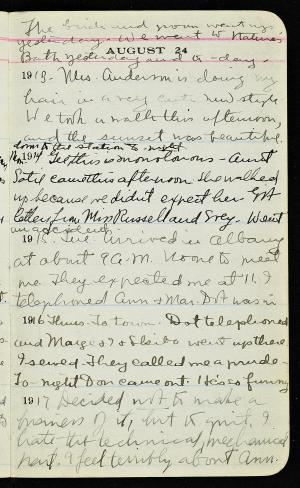 The bride and groom went up
yesterday. We went to Nature's
AUGUST 24
Bath yesterday and to-day.
1913. Mrs. Anderson is doing my
hair in a very cute new style
We took a walk this afternoon,
and the sunset was beautiful.
down to the station to-night
1914 Gee this is monotonous - Aunt
came this afternoon. She walked
up because we didn't expect her. Got
letters from Miss Russell and Grey. Went
1915. Tue. Arrived in Albany
at about 9 A.M. No one to meet
me. They expected me at 11. I
telephoned Ann & Mar. Dot was in
1916 Thurs. To town. Dot telephoned
and Marge & I & went up there
I sewed. They called me a prude -
To-night Don came out. He is so funny
1917 Decided not to make a
of it, but to quit. I
hate the technical, mechanical
part. I feel terribly about Ann.